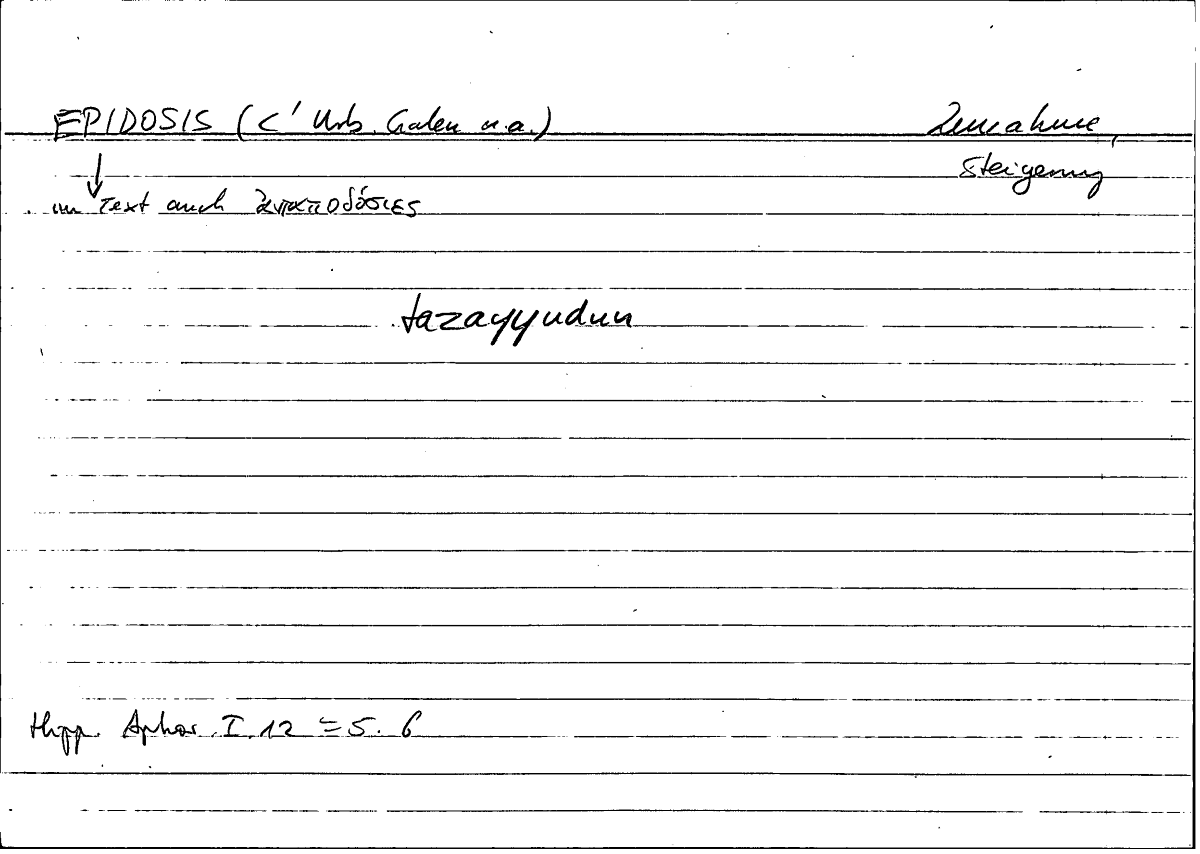 EPIDOSIS (C' Urb. Galen u.a.) Zunahme,
Steigerung
im Text auch ἀνταποδόσιες
tazayyudun
Hipp. Aphor. I.12 = 5. 6